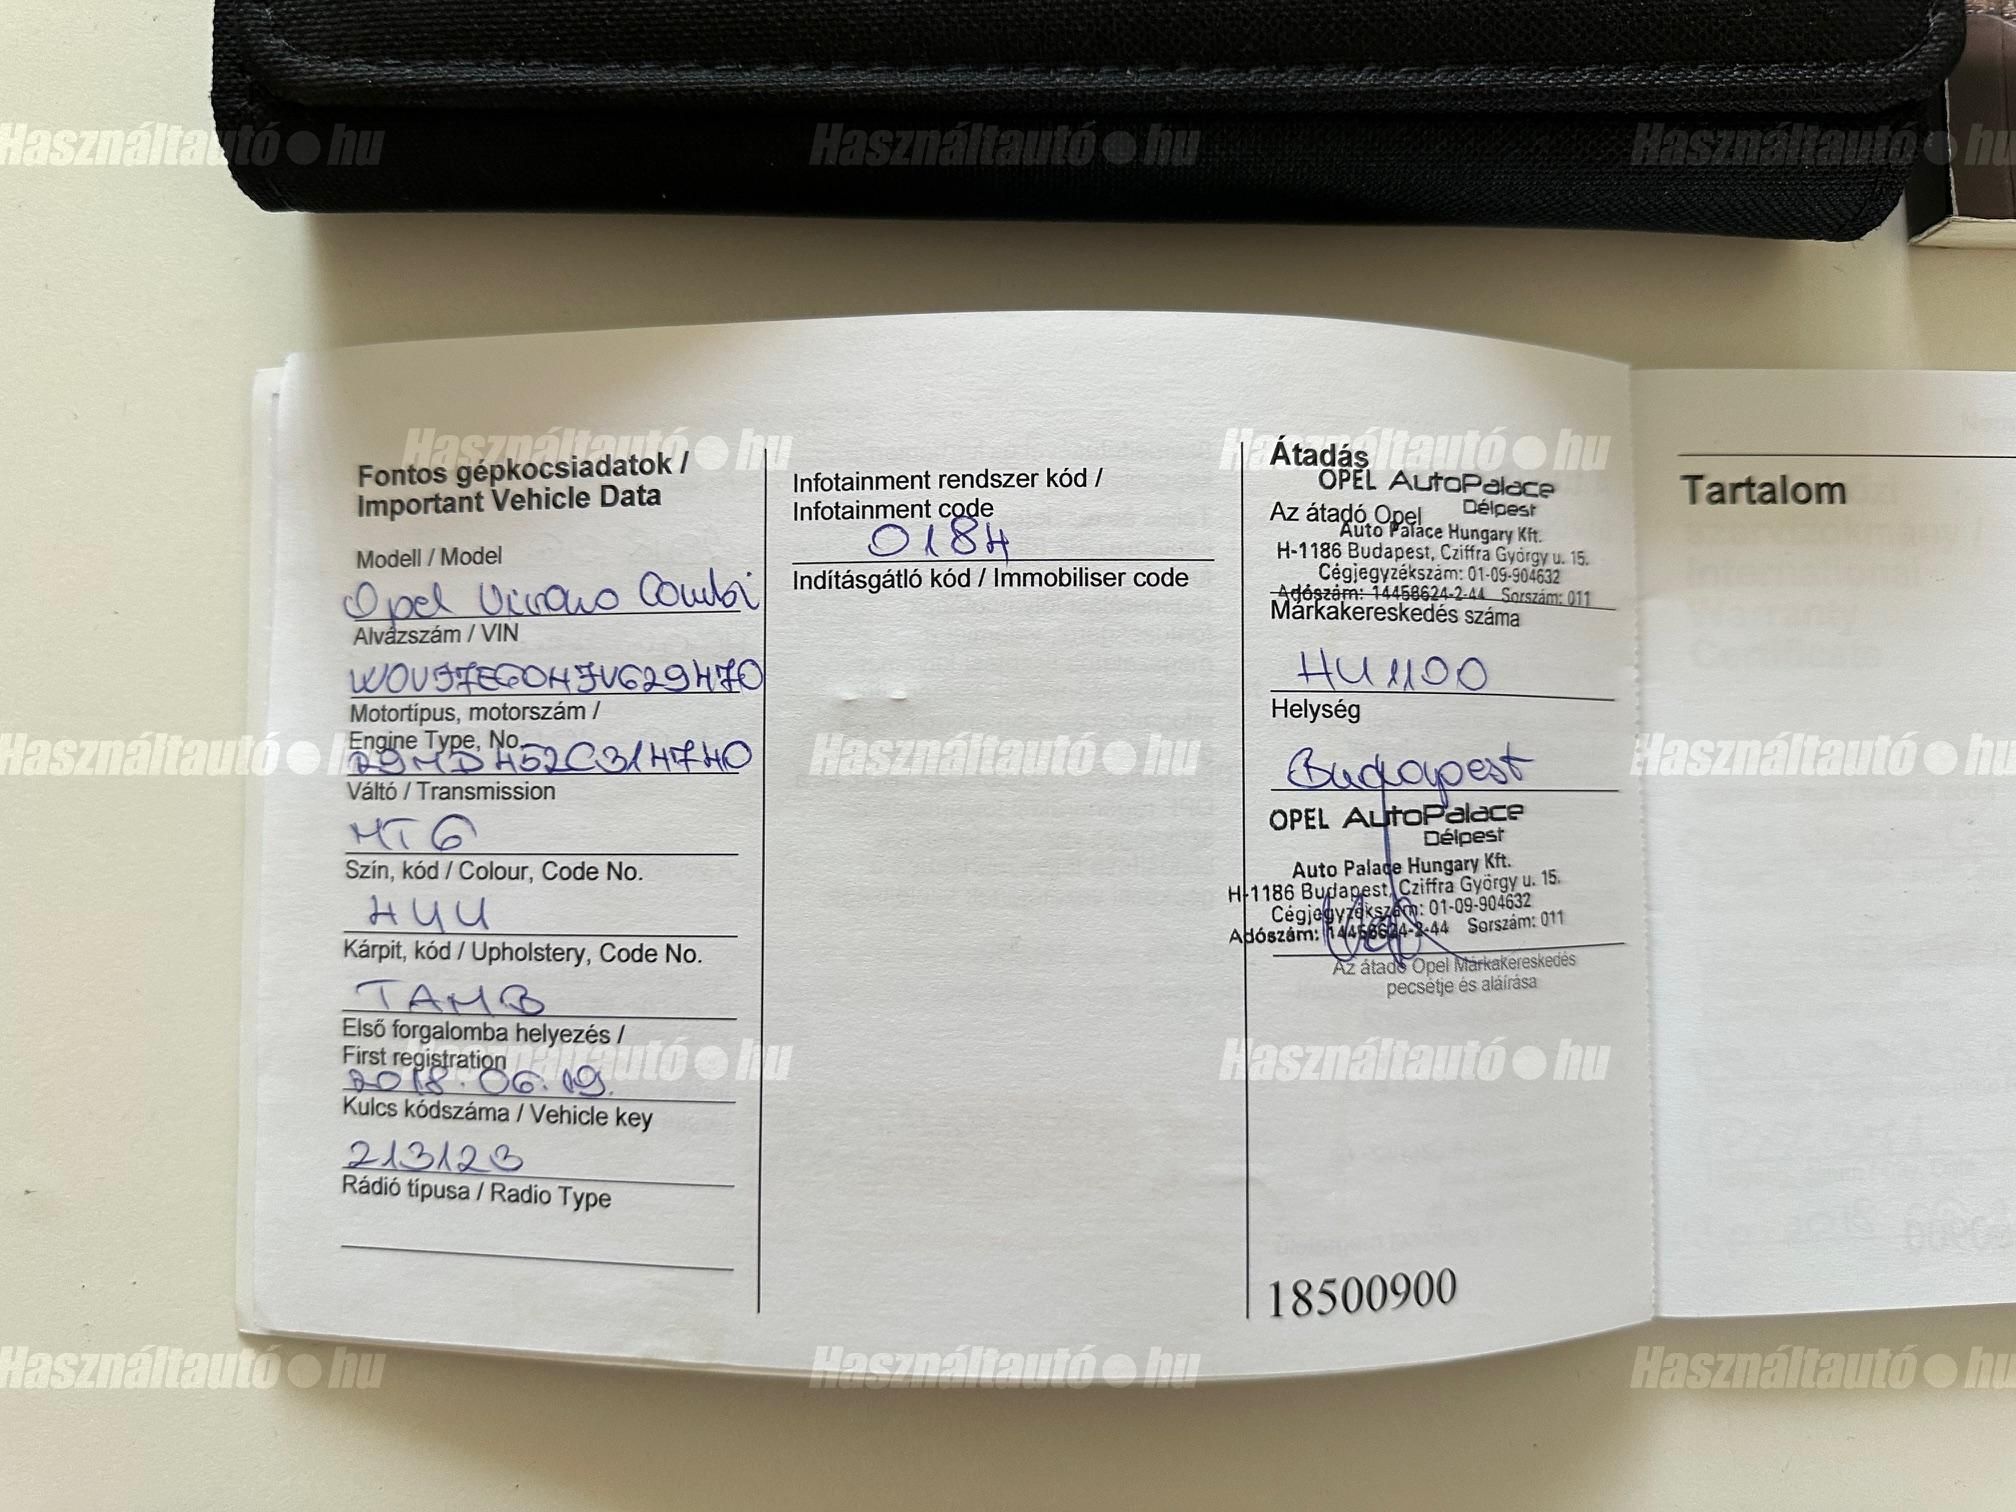 Fontos gépkocsiadatok /
Important Vehicle Data
Modell / Model
Opel Vivaro Combi
Alvázszám / VIN
W0VJ7E60HJV629470
Motortípus, motorszám /
Engine Type, No.
R9MD452C314740
Váltó / Transmission
MT6
Szín, kód / Colour, Code No.
Kárpit, kód / Upholstery, Code No.
TAMB
Első forgalomba helyezés /
First registration
2018.06.19.
Kulcs kódszáma / Vehicle key
213123
Rádió típusa / Radio Type
Infotainment rendszer kód /
Infotainment code
0184
Indításgátló kód / Immobiliser code
Átadás
OPEL AutoPalace
Délpest
Az átadó Opel
Auto Palace Hungary Kft.
H-1186 Budapest, Cziffra György u. 15.
Cégjegyzékszám: 01-09-904632
Adószám: 14458624-2-44 Sorszám: 011
Márkakereskedés száma
HU1100
Helység
Budapest
OPEL AutoPalace
Délpest
Auto Palace Hungary Kft.
H-1186 Budapest, Cziffra György u. 15.
Cégjegyzékszám: 01-09-904632
Adószám: 14458624-2-44 Sorszám: 011
Az átadó Opel Márkakereskedés
pecsétje és aláírása
18500900
Tartalom
Használtautó.hu